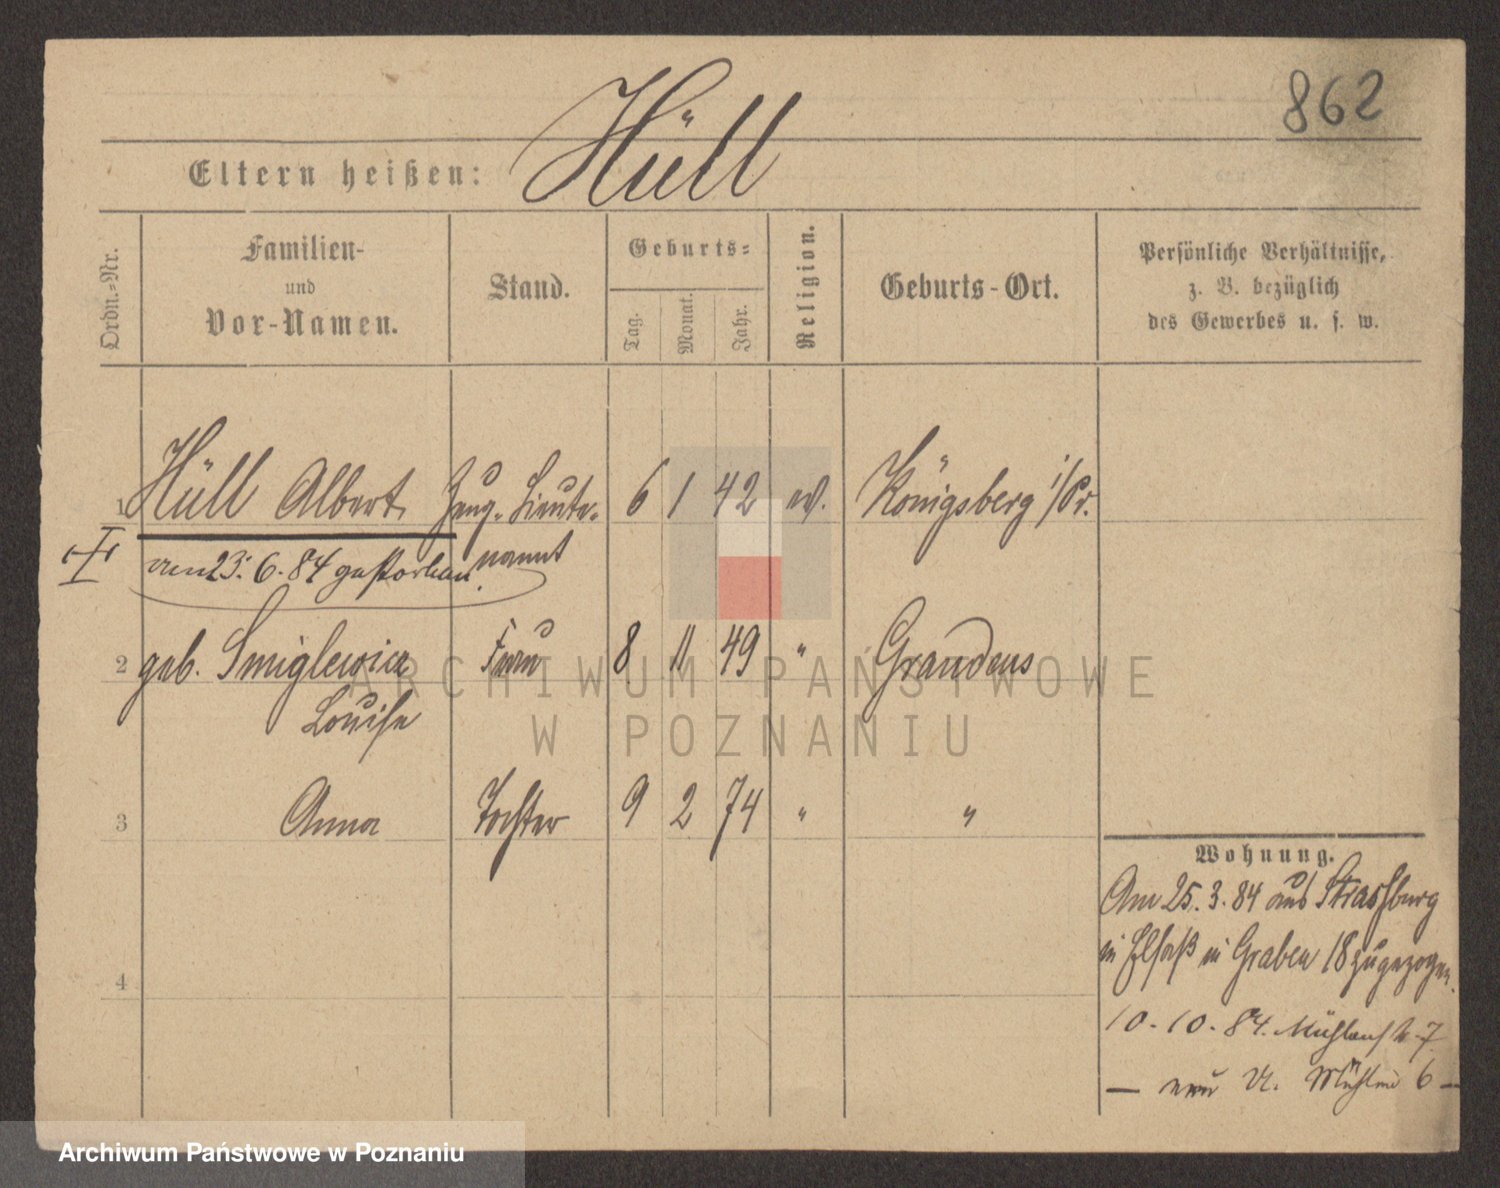 862
Eltern heißen: Hüll
Ordn.-Nr.
Familien-
und
Vor-Namen.
Stand.
Geburts-
Tag.
Monat.
Jahr.
Religion.
Geburts-Ort.
Persönliche Verhältnisse,
z. B. bezüglich
des Gewerbes u. s. w.
1 Hüll Albert Zeug-Lieute- 6 1 42 ev. Königsberg i/Pr.
am 23.6.84 gestorben. nannt
2 geb. Smiglewicz Frau 8 11 49 " Graudenz
Louise
3 Anna Tochter 9 2 74 " "
4
Wohnung.
Am 25.3.84 aus Strassburg
in Elsaß in Graben 18 zugezogen.
10.10.84. Mühlenstr. 7
— neu Mühlen 6 —
ARCHIWUM PAŃSTWOWE
W POZNANIU
Archiwum Państwowe w Poznaniu